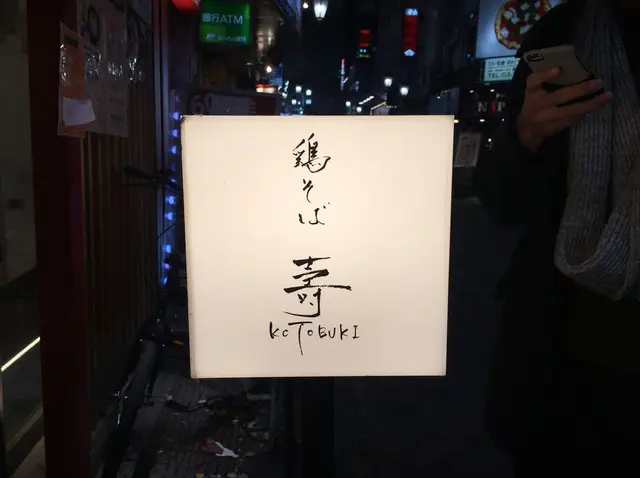 鶏そば
寿
KOTOBUKI
銀行ATM
TEL